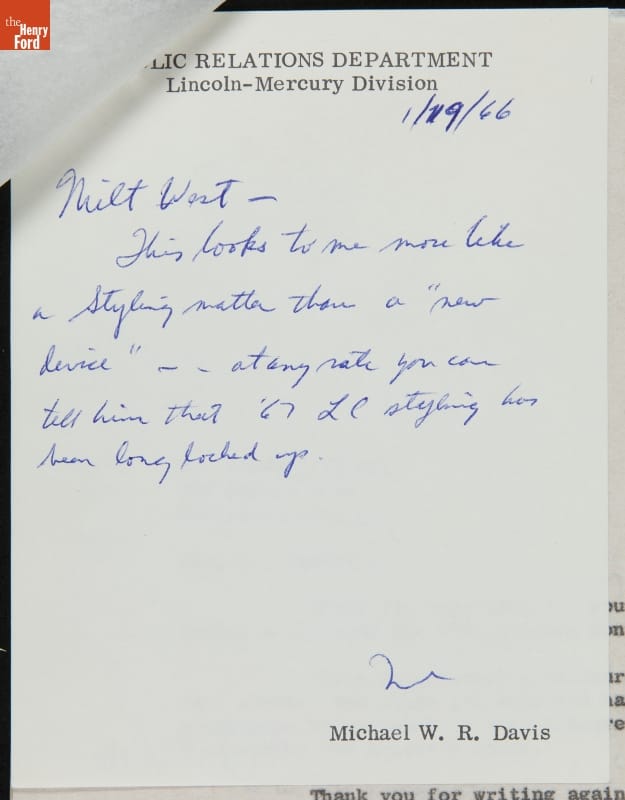 the
Henry
Ford
LIC RELATIONS DEPARTMENT
Lincoln-Mercury Division
1/19/66
Milt West —
This looks to me more like
a styling matter than a "new
device" - - at any rate you can
tell him that '67 LC styling has
been long locked up.
Michael W. R. Davis
Thank you for writing again